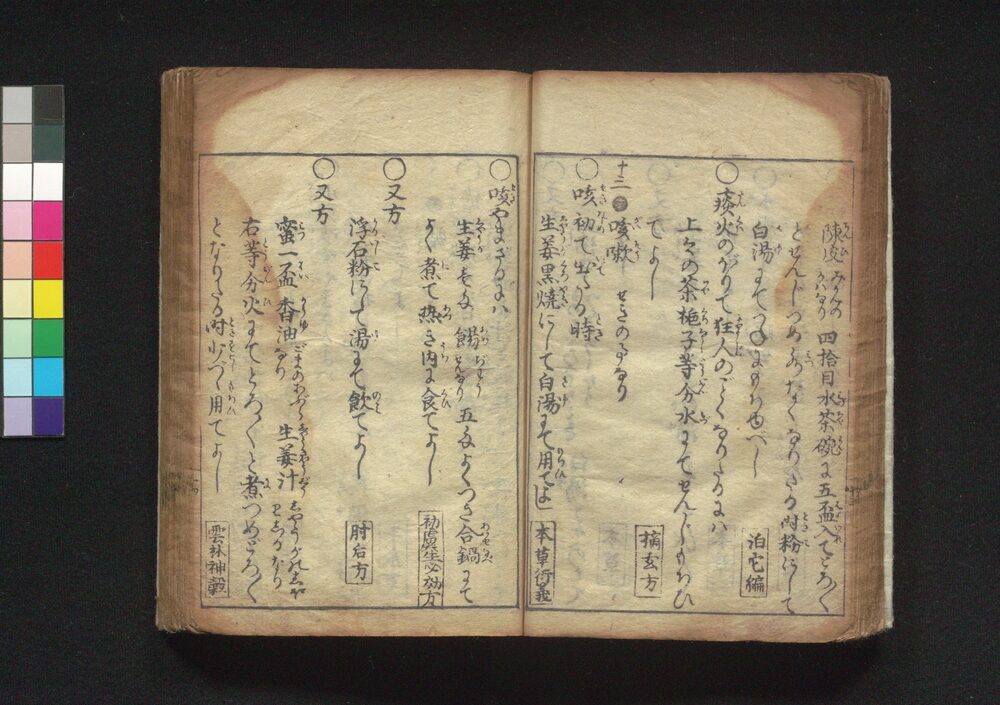 陳皮 みかんの かハなり 四拾目水茶碗に五盃入てとろ〱
とせんじつめ 水なくなりたる時粉にして
白湯にて つねにもちゆべし 泊宅編
○痰火のぼりて狂人のごとくなりたるにハ
上々の茶梔子等分水にてせんじもちひ
てよし 摘玄方
十二 咳嗽 せきの事なり
○咳初て出たる時
生姜黒焼にして白湯にて用てよし 本草衍義
○咳やまざるにハ
生姜 五匁よくつき合鍋にて
よく煮て熱き内に食てよし 初虞世必効方
○又方
浮石粉にして湯にて飲てよし 肘后方
○又方
蜜一盃香油 ごまのあぶらなり 生姜汁 しやうがのしぼりしるなり
右等分火にてとろ〱と煮つめどろ〱
となりたる時少づゝ用てよし 雲林神彀